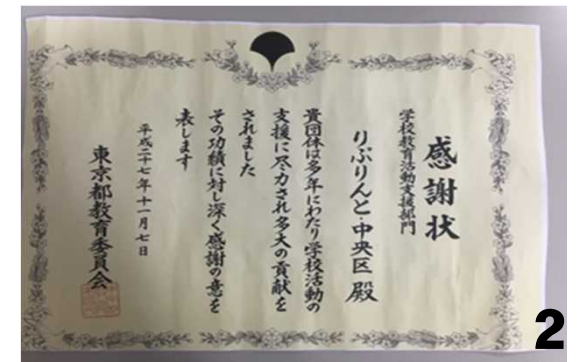 感謝状
学校教育活動支援部門
りぷりんと・中央区 殿
貴団体は多年にわたり学校活動の
支援に尽力され多大の貢献を
されました
その功績に対し深く感謝の意を
表します
平成二十七年十一月七日
東京都教育委員会
2